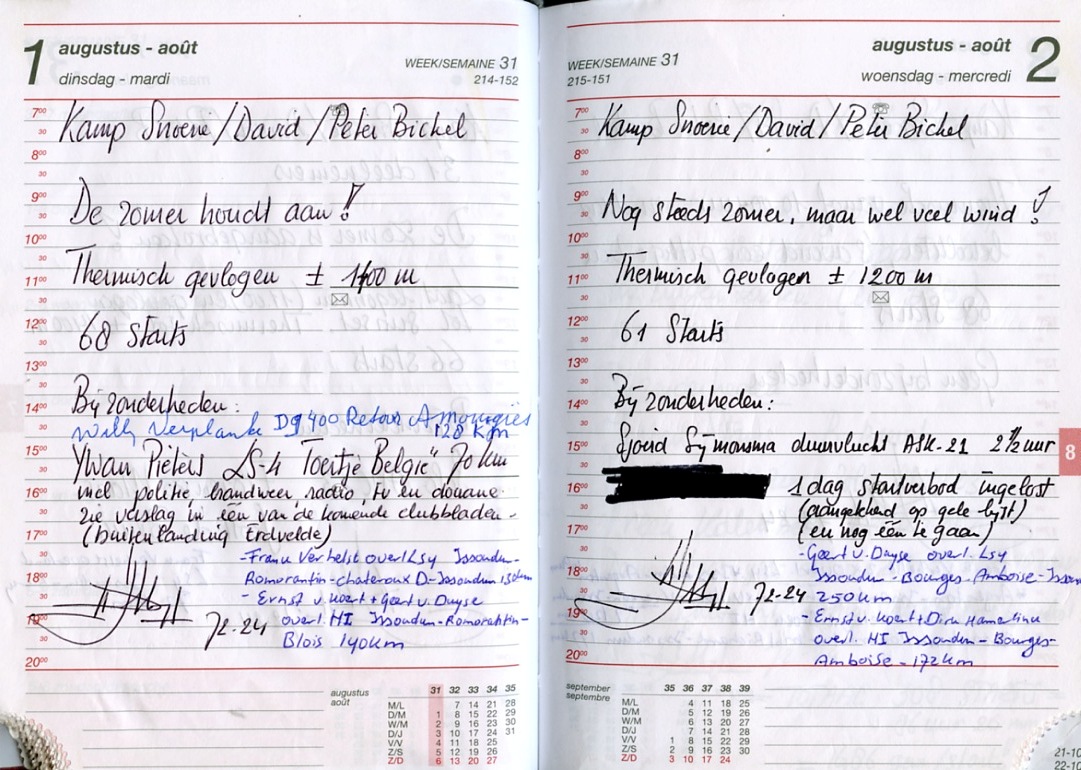 1 augustus - août
dinsdag - mardi
WEEK/SEMAINE 31
214-152
7⁰⁰
30
8⁰⁰
30
9⁰⁰
30
10⁰⁰
30
11⁰⁰
30
12⁰⁰
30
13⁰⁰
30
14⁰⁰
30
15⁰⁰
30
16⁰⁰
30
17⁰⁰
30
18⁰⁰
30
19⁰⁰
30
20⁰⁰
Kamp Snoerie/David/Peter Bickel
De zomer houdt aan!
Thermisch gevlogen ± 1400 m
68 Starts
Bijzonderheden:
Willy Verplancke DG400 Retour Amougies
128 Km
Ywan Pieters LS-4 Toertje België" 70 km
incl politie, brandweer radio, tv en douane.
Zie verslag in één van de komende clubbladen.
(buitenlanding Erdvelde)
- Frank Verhelst overl Lsy Issoudun-
Romorantin-chateroux D-Issoudun 150km
- Ernst v. Koert + Geert v. Duyse
overl. HI Issoudun-Romorantin-
Blois 140km
72-24
augustus
août
31 32 33 34 35
M/L 7 14 21 28
D/M 1 8 15 22 29
W/M 2 9 16 23 30
D/J 3 10 17 24 31
V/V 4 11 18 25
Z/S 5 12 19 26
Z/D 6 13 20 27
augustus - août 2
woensdag - mercredi
WEEK/SEMAINE 31
215-151
7⁰⁰
30
8⁰⁰
30
9⁰⁰
30
10⁰⁰
30
11⁰⁰
30
12⁰⁰
30
13⁰⁰
30
14⁰⁰
30
15⁰⁰
30
16⁰⁰
30
17⁰⁰
30
18⁰⁰
30
19⁰⁰
30
20⁰⁰
Kamp Snoerie/David/Peter Bickel
Nog steeds zomer, maar wel veel wind!
Thermisch gevlogen ± 1200 m
61 Starts
Bijzonderheden:
Sjoerd Sijmonsma duurvlucht ASK-21 2½ uur
1 dag startverbod ingelost
(aangekleed op gele lijst)
(en nog één te gaan)
- Geert v. Duyse overl. Lsy
Issoudun-Bourges-Amboise-Isso
250km
- Ernst v. Koert + Dirk Hamerlinck
overl. HI Issoudun-Bourges-
Amboise - 172km
72-24
8
september
septembre
35 36 37 38 39
M/L 4 11 18 25
D/M 5 12 19 26
W/M 6 13 20 27
D/J 7 14 21 28
V/V 1 8 15 22 29
Z/S 2 9 16 23 30
Z/D 3 10 17 24
21-10
22-10